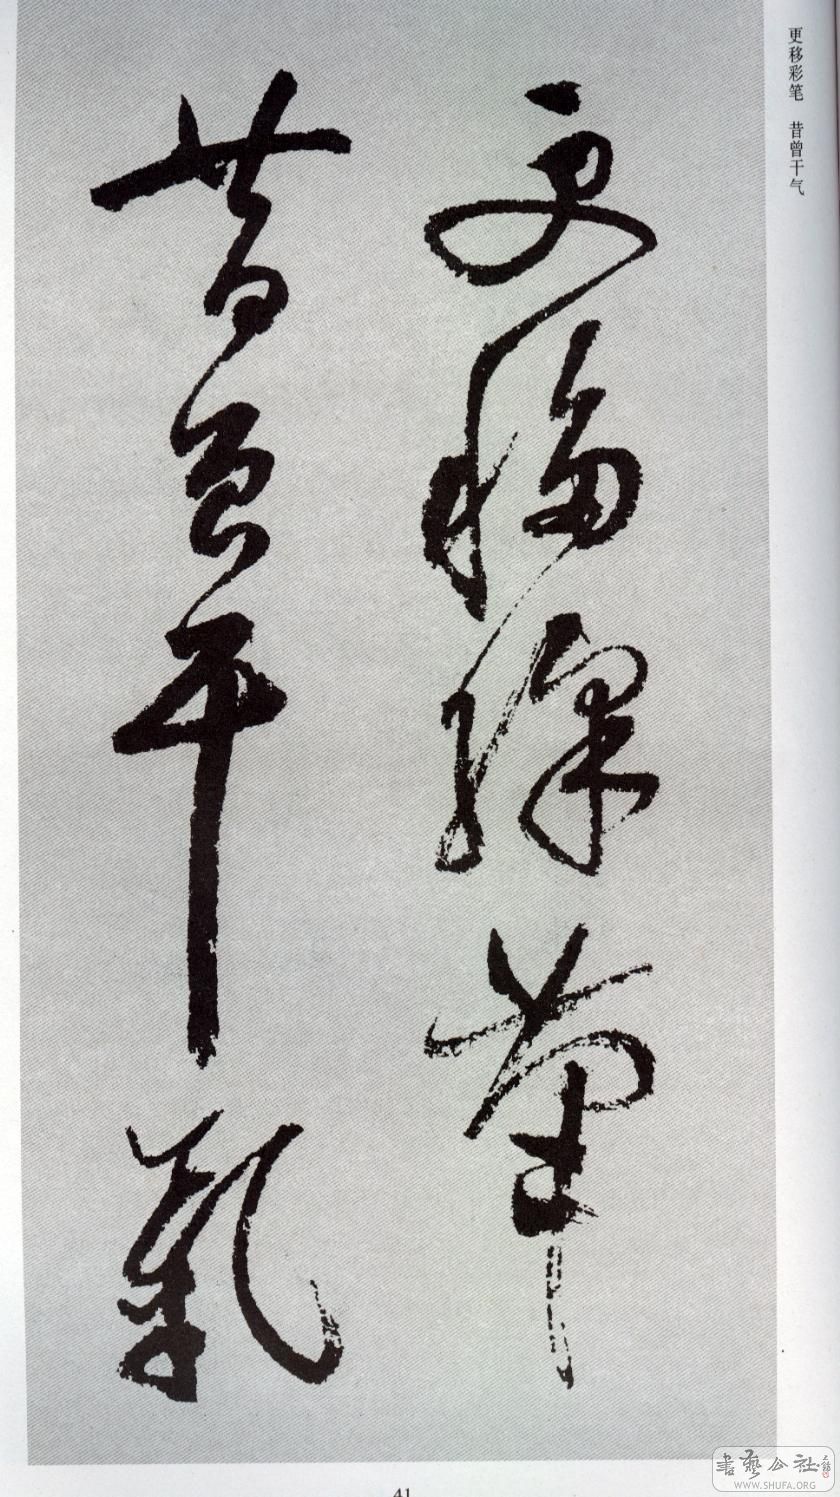 更移彩笔 昔曾干气
更移綵筆
昔曾干氣
41
書藝公社
WWW.SHUFA.ORG